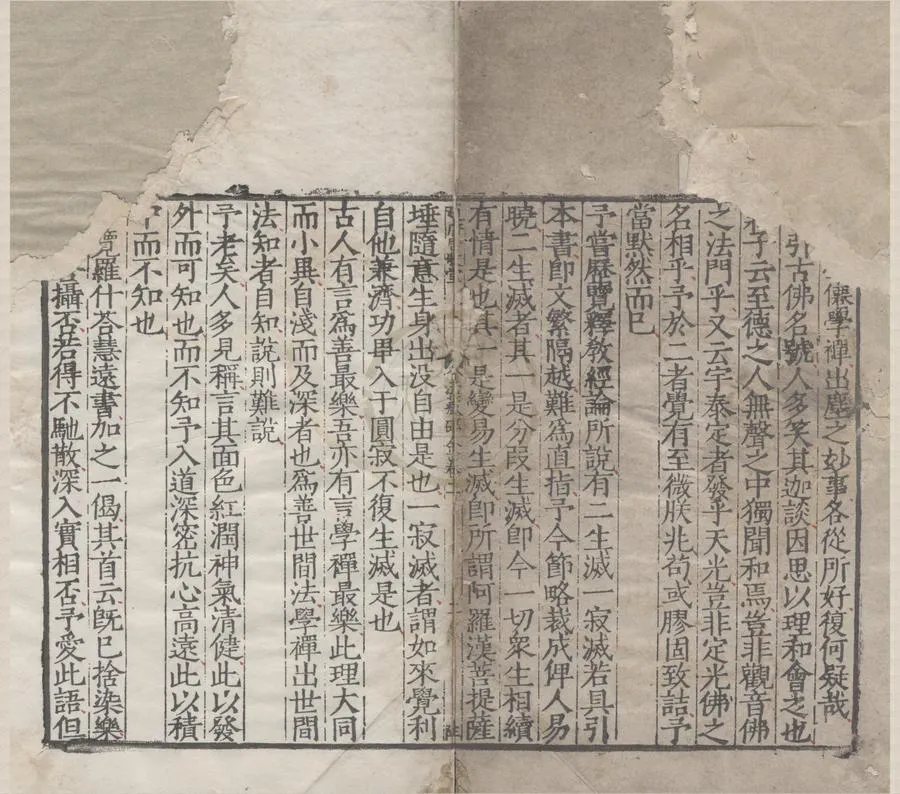 儴學禪出塵之妙事各從所好復何疑哉
引古佛名號人多笑其迦談因思以理和會之也
子云至德之人無聲之中獨聞和焉豈非觀音佛
之法門乎又云宇泰定者發乎天光豈非定光佛之
名相乎予於二者覺有至微朕兆苟或膠固致詰予
當默然而已
予嘗歷覽釋教經論所說有二生滅一寂滅若具引
本書即文繁隔越難為直指予今節略裁成俾人易
曉二生滅者其一是分段生滅即今一切眾生相續
有情是也其一是變易生滅即所謂阿羅漢菩提薩
埵隨意生身出沒自由是也一寂滅者謂如來覺利
自他兼濟功畢入于圓寂不復生滅是也
古人有言為善最樂吾亦有言學禪最樂此理大同
而小異自淺而及深者也為善世間法學禪出世間
法知者自知說則難說
予老矣人多見稱言其面色紅潤神氣清健此以發
外而可知也而不知予入道深密抗心高遠此以積
中而不知也
覽羅什答慧遠書加之一偈其首云既已捨染樂
攝否若得不馳散深入實相否予愛此語但